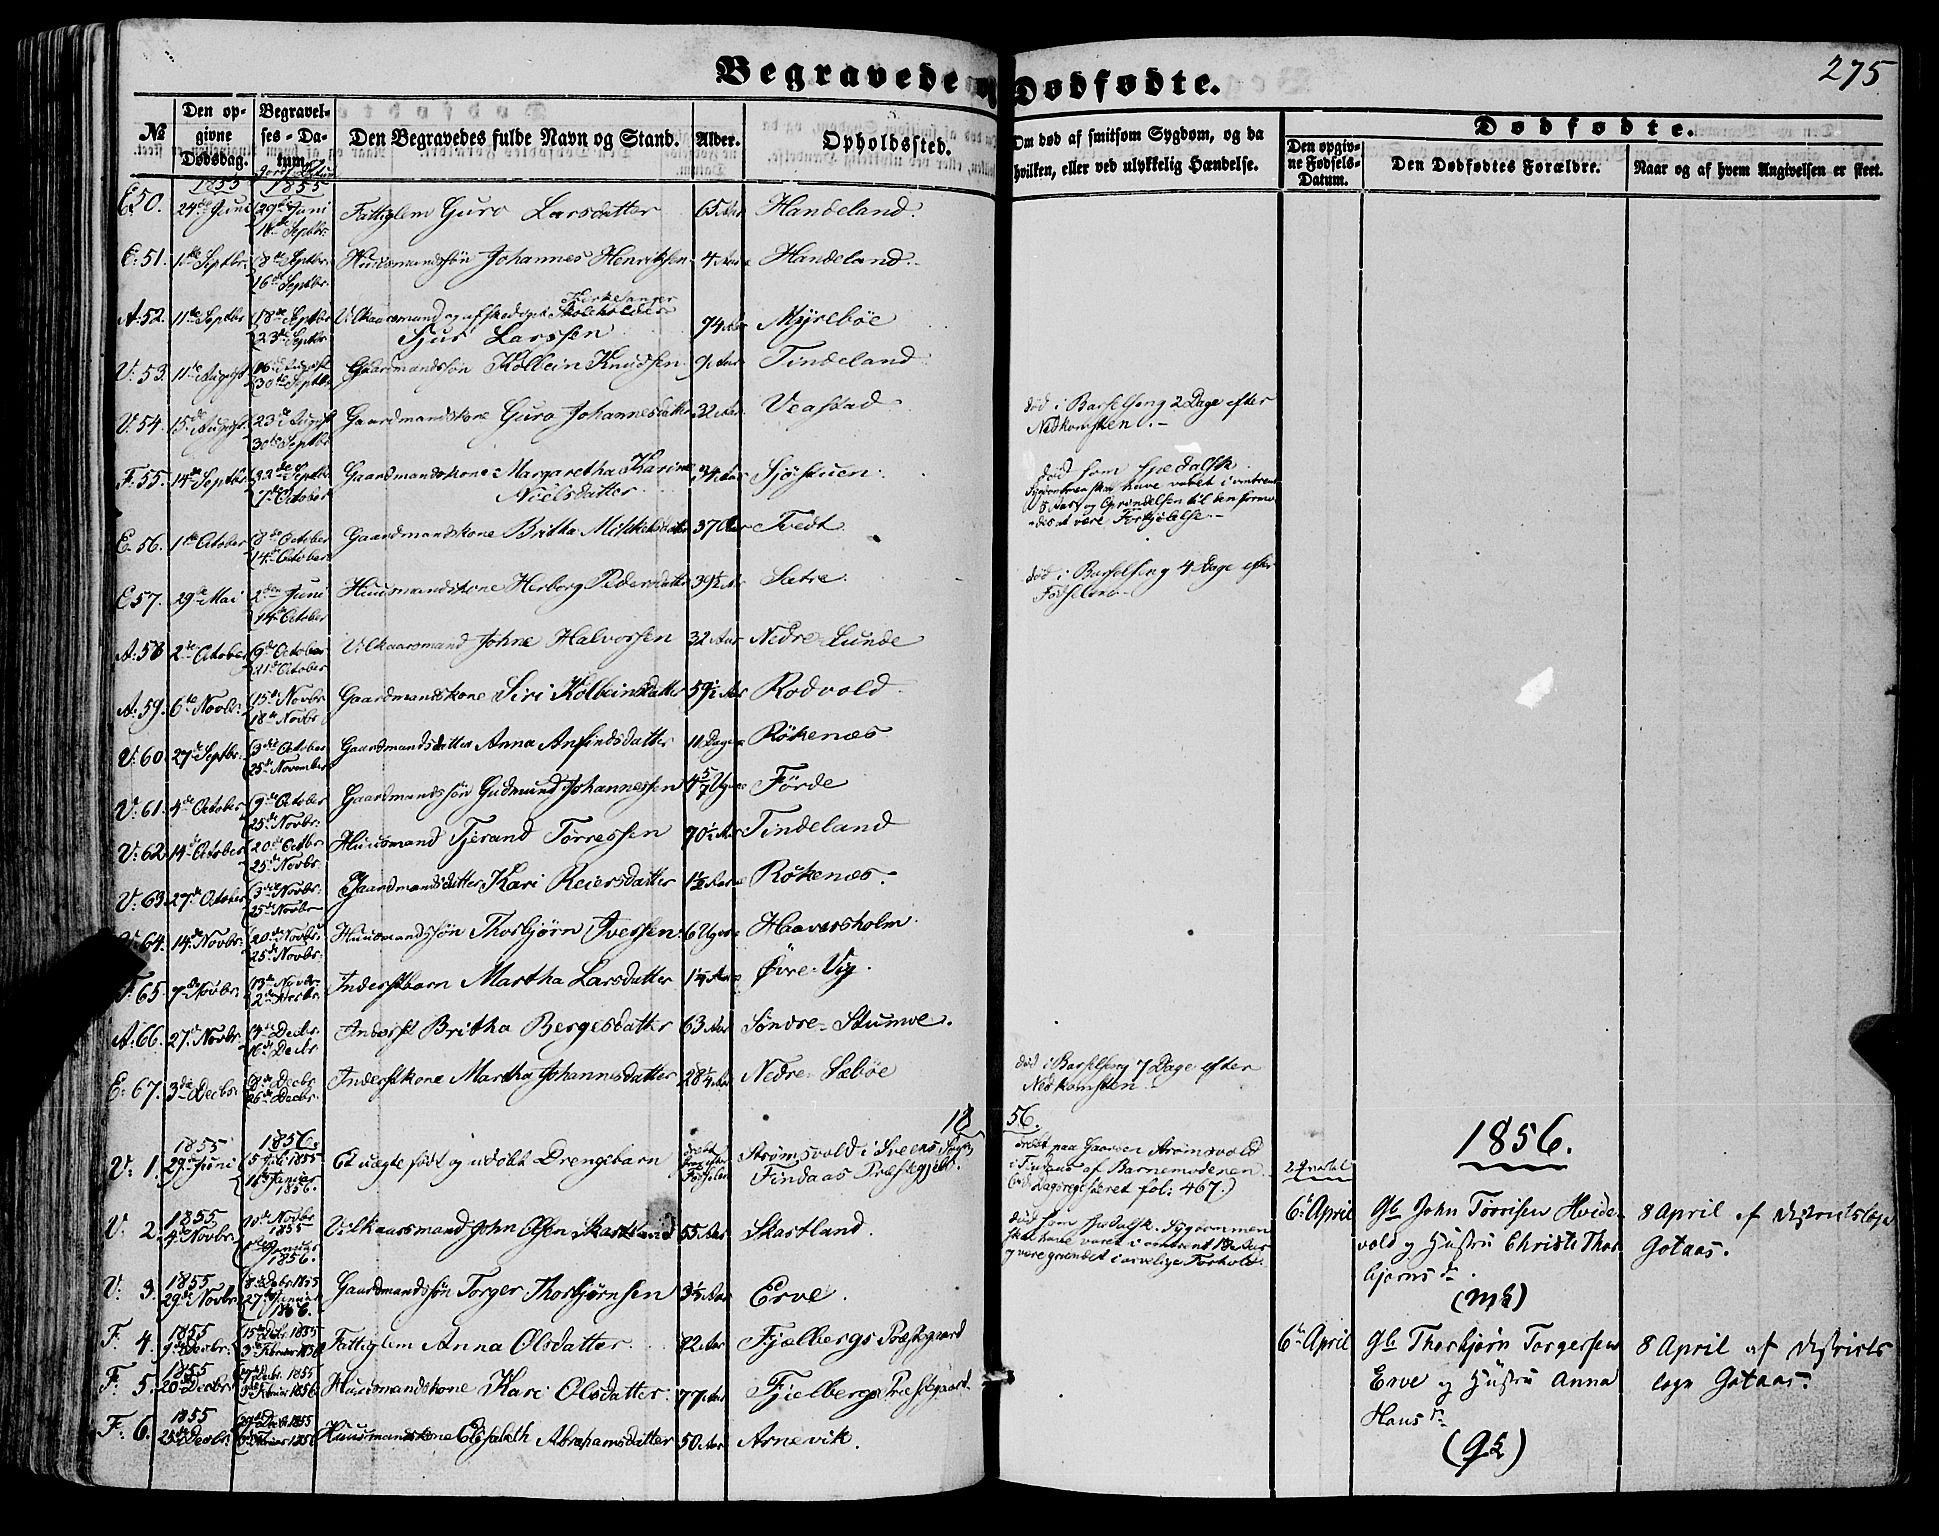 275
Begravede og Dødfødte.
No
Den op-
givne
Dødsdag.
Begravel-
ses - Da-
tum.
Den Begravedes fulde Navn og Stand.
Alder.
Opholdssted.
Om død af smitsom Sygdom, og da
hvilken, eller ved ulykkelig Hændelse.
Dødfødte.
Den opgiv-
ne Fødsels-
Datum.
Den Dødfødtes Forældre.
Naar og af hvem Angivelsen er skeet.
1855 1855
E. 50. 24de Juni 29de Juni Fattiglem Guro Larsdatter 65 Aar Handeland.
16de Septbr.
E. 51. 1ste Septbr. 8de Septbr. Huusmandssøn Johannes Henriksen 4 Aar Handeland.
16de Septbr.
A. 52. 11te Septbr 18de Septbr Vilkaarsmand og afskediget Kirkesanger Skoleholder
23de Septbr Sjur Larssen 74 Aar Myrebøe
V. 53. 11te August 16de August Gaardmandssøn Kolbein Knudsen Tindeland
30te Septbr.
V. 54. 15de August 23de August Gaardmandskone Guro Johannesdatter 32 Aar Veastad død i Barselseng 2 Dage efter
30te Septbr Nedkomsten.
F. 55. 14de Septbr. 22de Septbr Gaardmandskone Margaretha Karine 34 Aar Sjøstuen. død som spedalsk
7de October Nielsdatter
Forkjølelse.
E. 56. 1ste October 8de October Gaardmandskone Britha Mikkelsdatter 37 Aar Tvedt
14de October
E. 57. 29de Mai 2den Juni Huusmandskone Herborg Pedersdatter 39½ Aar Sætre. død i Barselseng 4 Dage efter
14de October Fødselen
A. 58 2de October 9de October Vilkaarsmand Johne Halvorssen 32 Aar Nedre-Lunde
21de October
A. 59. 6te Novbr. 15de Novbr Gaardmandskone Siri Kolbeinsdatter 59½ Aar Rodvold.
18de Novbr
V. 60. 27de Septbr. 3die October Gaardmandsdatter Anna Anfindsdatter 11 Dage Rökenæs
25de November
V. 61. 4de October 9de October Gaardmandssøn Gudmund Johannessen 4 5/7 Uger Förde
25de Novbr.
V. 62. 14de October 20de Octbr Huusmand Tjerand Torressen 70½ Aar Tindeland
25de Novbr.
V. 63. 27de October 3die Novbr. Gaardmandsdatter Kari Reiersdatter 1½ Aar Rökenæs.
25de Novbr
V. 64. 14de Novbr. 20de Novbr. Huusmandssøn Thorbjørn Iverssen 6 Uger Haaversholm.
25de Novbr.
F. 65. 7de Novbr. 13de Novbr. Inderstbarn Martha Larsdatter 1¼ Aar Øvre-Vig.
2den Decbr.
A. 66. 27de Novbr. 4de Decbr. Inderst Britha Bergesdatter 63 Aar Søndre-Stumoe.
16de Decbr.
E. 67. 3die Decbr. 9de Decbr. Inderstkone Martha Johannesdatter 28¼ Aar Nedre-Sæbøe død i Barselseng 7 Dage efter
26de Decbr. Nedkomsten
1856.
1856.
V. 1. 1855 29de Juni 1856. 5 Juli 1855 Et uægte født og udøbt Drengebarn dræbt strax efter Fødselen Strømsvold i Sveens Sogn, dræbt paa Gaarden Strømsvold
Januar 1856. Findaas Præstegjeld. i Findaas af Barnemoderen
(vid. Dagsregisteret fol: 467.)
V. 2. 1855 4de Novbr. 10de Novbr 1855 Vilkaarsmand John Olsen Skartland 55 Aar Skartland. død som spedalsk. Sygdommen
Januar 1856. skal have varet i omtrent 18 Aar
og være grundet i arvelige Forhold.
V. 3. 1855 29de Novbr. 8de Decbr. 1855 Gaardmandssøn Torger Thorbjørnsen 3½ Aar Erve.
27de Januar 1856.
F. 4. 1855 9de Decbr. 15de Decbr. 1855 Fattiglem Anna Olsdatter 82 Aar Fjelbergs Præstegaard
3die Februar 1856
F. 5. 1855 20de Decbr. 27de Decbr. 1855 Huusmandskone Kari Olsdatter. 77 Aar Fjelbergs Præstegaard
3die Februar 1856.
F. 6. 1855 25de Decbr. 29de Decbr 1855 Huusmandskone Elisabeth Abrahamsdatter 50 Aar Arnevik.
Februar 1856
2 Qvartal
6te April Gb. John Torrisen Hvide- 8 April af Districtslæge
vold og Hustru Christi Thor- Gotaas.
bjørnsdr.
(Mk)
6te April Gb. Thorbjørn Torgersen 8 April af Districts
Erve og Hustru Anna læge Gotaas.
Hansdr.
(Qk)